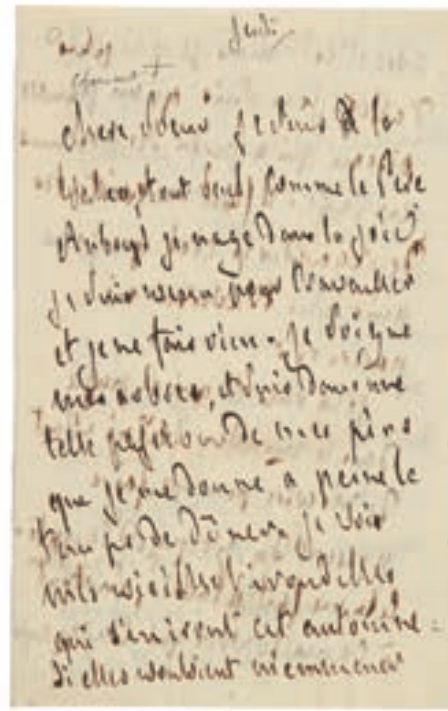 jeudi
chère Soeur je suis à la
tout seul, comme le Père
je nage dans la joie,
je suis venu pour travailler
et je ne fais rien. je soigne
mes arbres, et suis dans une
telle de mes pins
que je me donne à peine le
temps de dîner. je vois
mes vieilles hirondelles
qui s'en iront cet automne =
si elles voulaient m'emmener